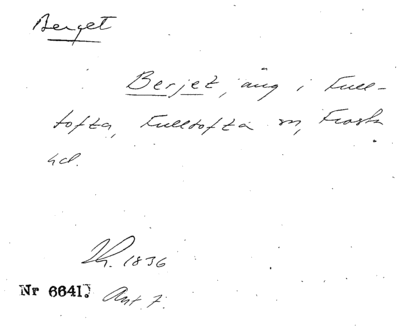 Berget
Berjet, äng i Full-
tofta, Fulltofta sn, Frosta
hd.
1836
Nr 6641. Ant 7.